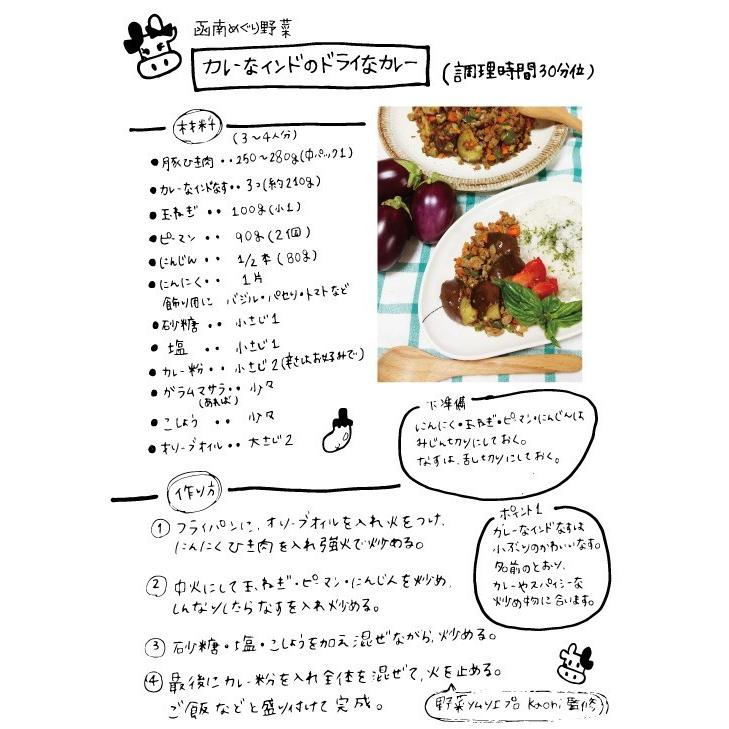 函南めぐり野菜
カレーなインドのドライなカレー
(調理時間30分位)
材料
(3〜4人分)
●豚ひき肉・・250〜280g(中パック1)
●カレーなインドなす・・3つ(約210g)
●玉ねぎ・・100g(小1)
●ピーマン・・90g(2個)
●にんじん・・1/2本(80g)
●にんにく・・1片
飾り用に バジル・パセリ・トマトなど
●砂糖・・小さじ1
●塩・・小さじ1
●カレー粉・・小さじ2(辛さはお好みで)
●ガラムマサラ・・少々
(あれば)
●こしょう・・少々
●オリーブオイル・・大さじ2
下準備
にんにく・玉ねぎ・ピーマン・にんじんは
みじん切りにしておく。
なすは、乱切りにしておく。
作り方
① フライパンに、オリーブオイルを入れ火をつけ、
にんにくひき肉を入れ強火で炒める。
② 中火にして玉ねぎ・ピーマン・にんじんを炒め、
しんなりしたらなすを入れ炒める。
③ 砂糖・塩・こしょうを加え混ぜながら、炒める。
④ 最後にカレー粉を入れ全体を混ぜて、火を止める。
ご飯などと盛り付けて完成。
ポイント1
カレーなインドなすは
小ぶりのかわいいなす。
名前のとおり、
カレーやスパイシーな
炒め物に合います。
野菜ソムリエプロ Kaori 監修